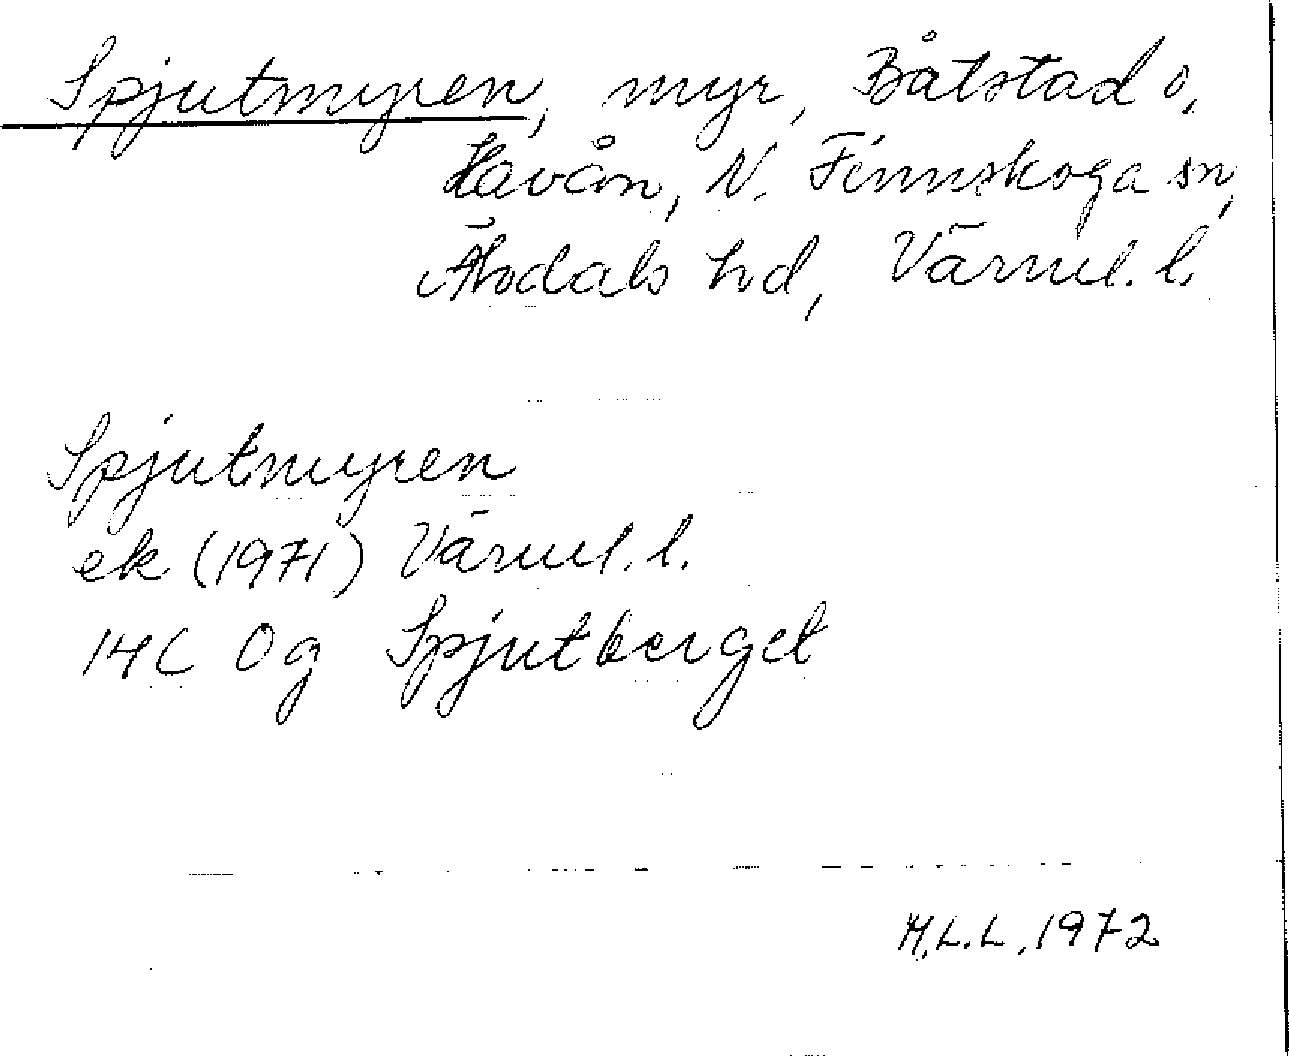 Spjutmyren, myr, Båtstad o,
Havån, N. Finnskoga sn,
Älvdals hd, Värml. l.
Spjutmyren
ek (1971) Värml. l.
14C 0g Spjutberget
M.L.L, 1972